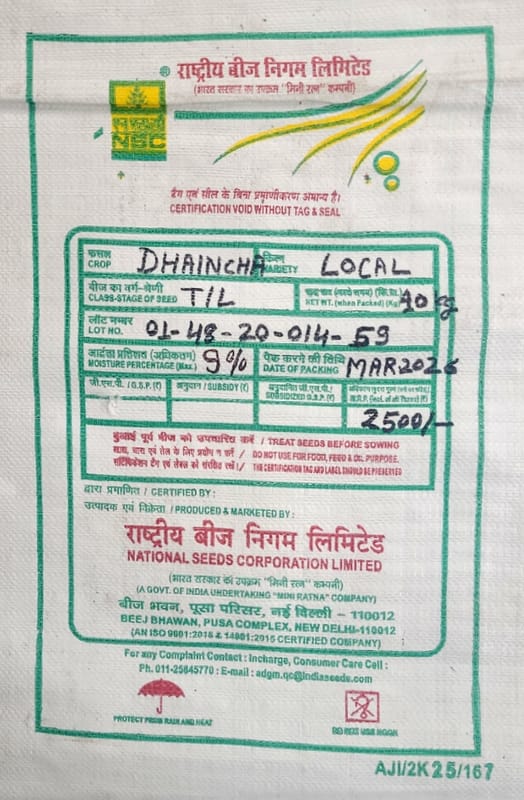 ® राष्ट्रीय बीज निगम लिमिटेड
(भारत सरकार का उपक्रम "मिनी रत्न" कम्पनी)
NSC
टैग एवं सील के बिना प्रमाणीकरण अमान्य है।
CERTIFICATION VOID WITHOUT TAG & SEAL
फसल CROP DHAINCHA किस्म VARIETY LOCAL
बीज का वर्ग-श्रेणी CLASS-STAGE OF SEED T/L NET WT. (when Packed) (Kg) 10 kg
लौट नम्बर LOT NO. 01-48-20-014-59
आर्द्रता प्रतिशत (अधिकतम) MOISTURE PERCENTAGE (Max.) 9% पैक करने की तिथि DATE OF PACKING MAR2026
जी.एस.पी. / G.S.P. (₹) अनुदान / SUBSIDY (₹) अनुदानित जी.एस.पी./ SUBSIDIZED G.S.P. (₹) M.R.P. (incl. of all Taxes) (₹)
2500/-
बुआई पूर्व बीज को उपचारित करें / TREAT SEEDS BEFORE SOWING
खाद्य, चारा एवं तेल के लिए प्रयोग न करें / DO NOT USE FOR FOOD, FEED & OIL PURPOSE.
सर्टिफिकेशन टैग एवं लेबल को संरक्षित रखें / THE CERTIFICATION TAG AND LABEL SHOULD BE PRESERVED
द्वारा प्रमाणित / CERTIFIED BY :
उत्पादक एवं विक्रेता / PRODUCED & MARKETED BY :
राष्ट्रीय बीज निगम लिमिटेड
NATIONAL SEEDS CORPORATION LIMITED
(भारत सरकार का उपक्रम "मिनी रत्न" कम्पनी)
(A GOVT. OF INDIA UNDERTAKING "MINI RATNA" COMPANY)
बीज भवन, पूसा परिसर, नई दिल्ली - 110012
BEEJ BHAWAN, PUSA COMPLEX, NEW DELHI-110012
(AN ISO 9001:2015 & 14001:2015 CERTIFIED COMPANY)
For any Complaint Contact : Incharge, Consumer Care Cell :
Ph. 011-25845770 : E-mail : adgm.qc@indiaseeds.com
PROTECT FROM RAIN AND HEAT
DO NOT USE HOOK
AJI/2K25/167